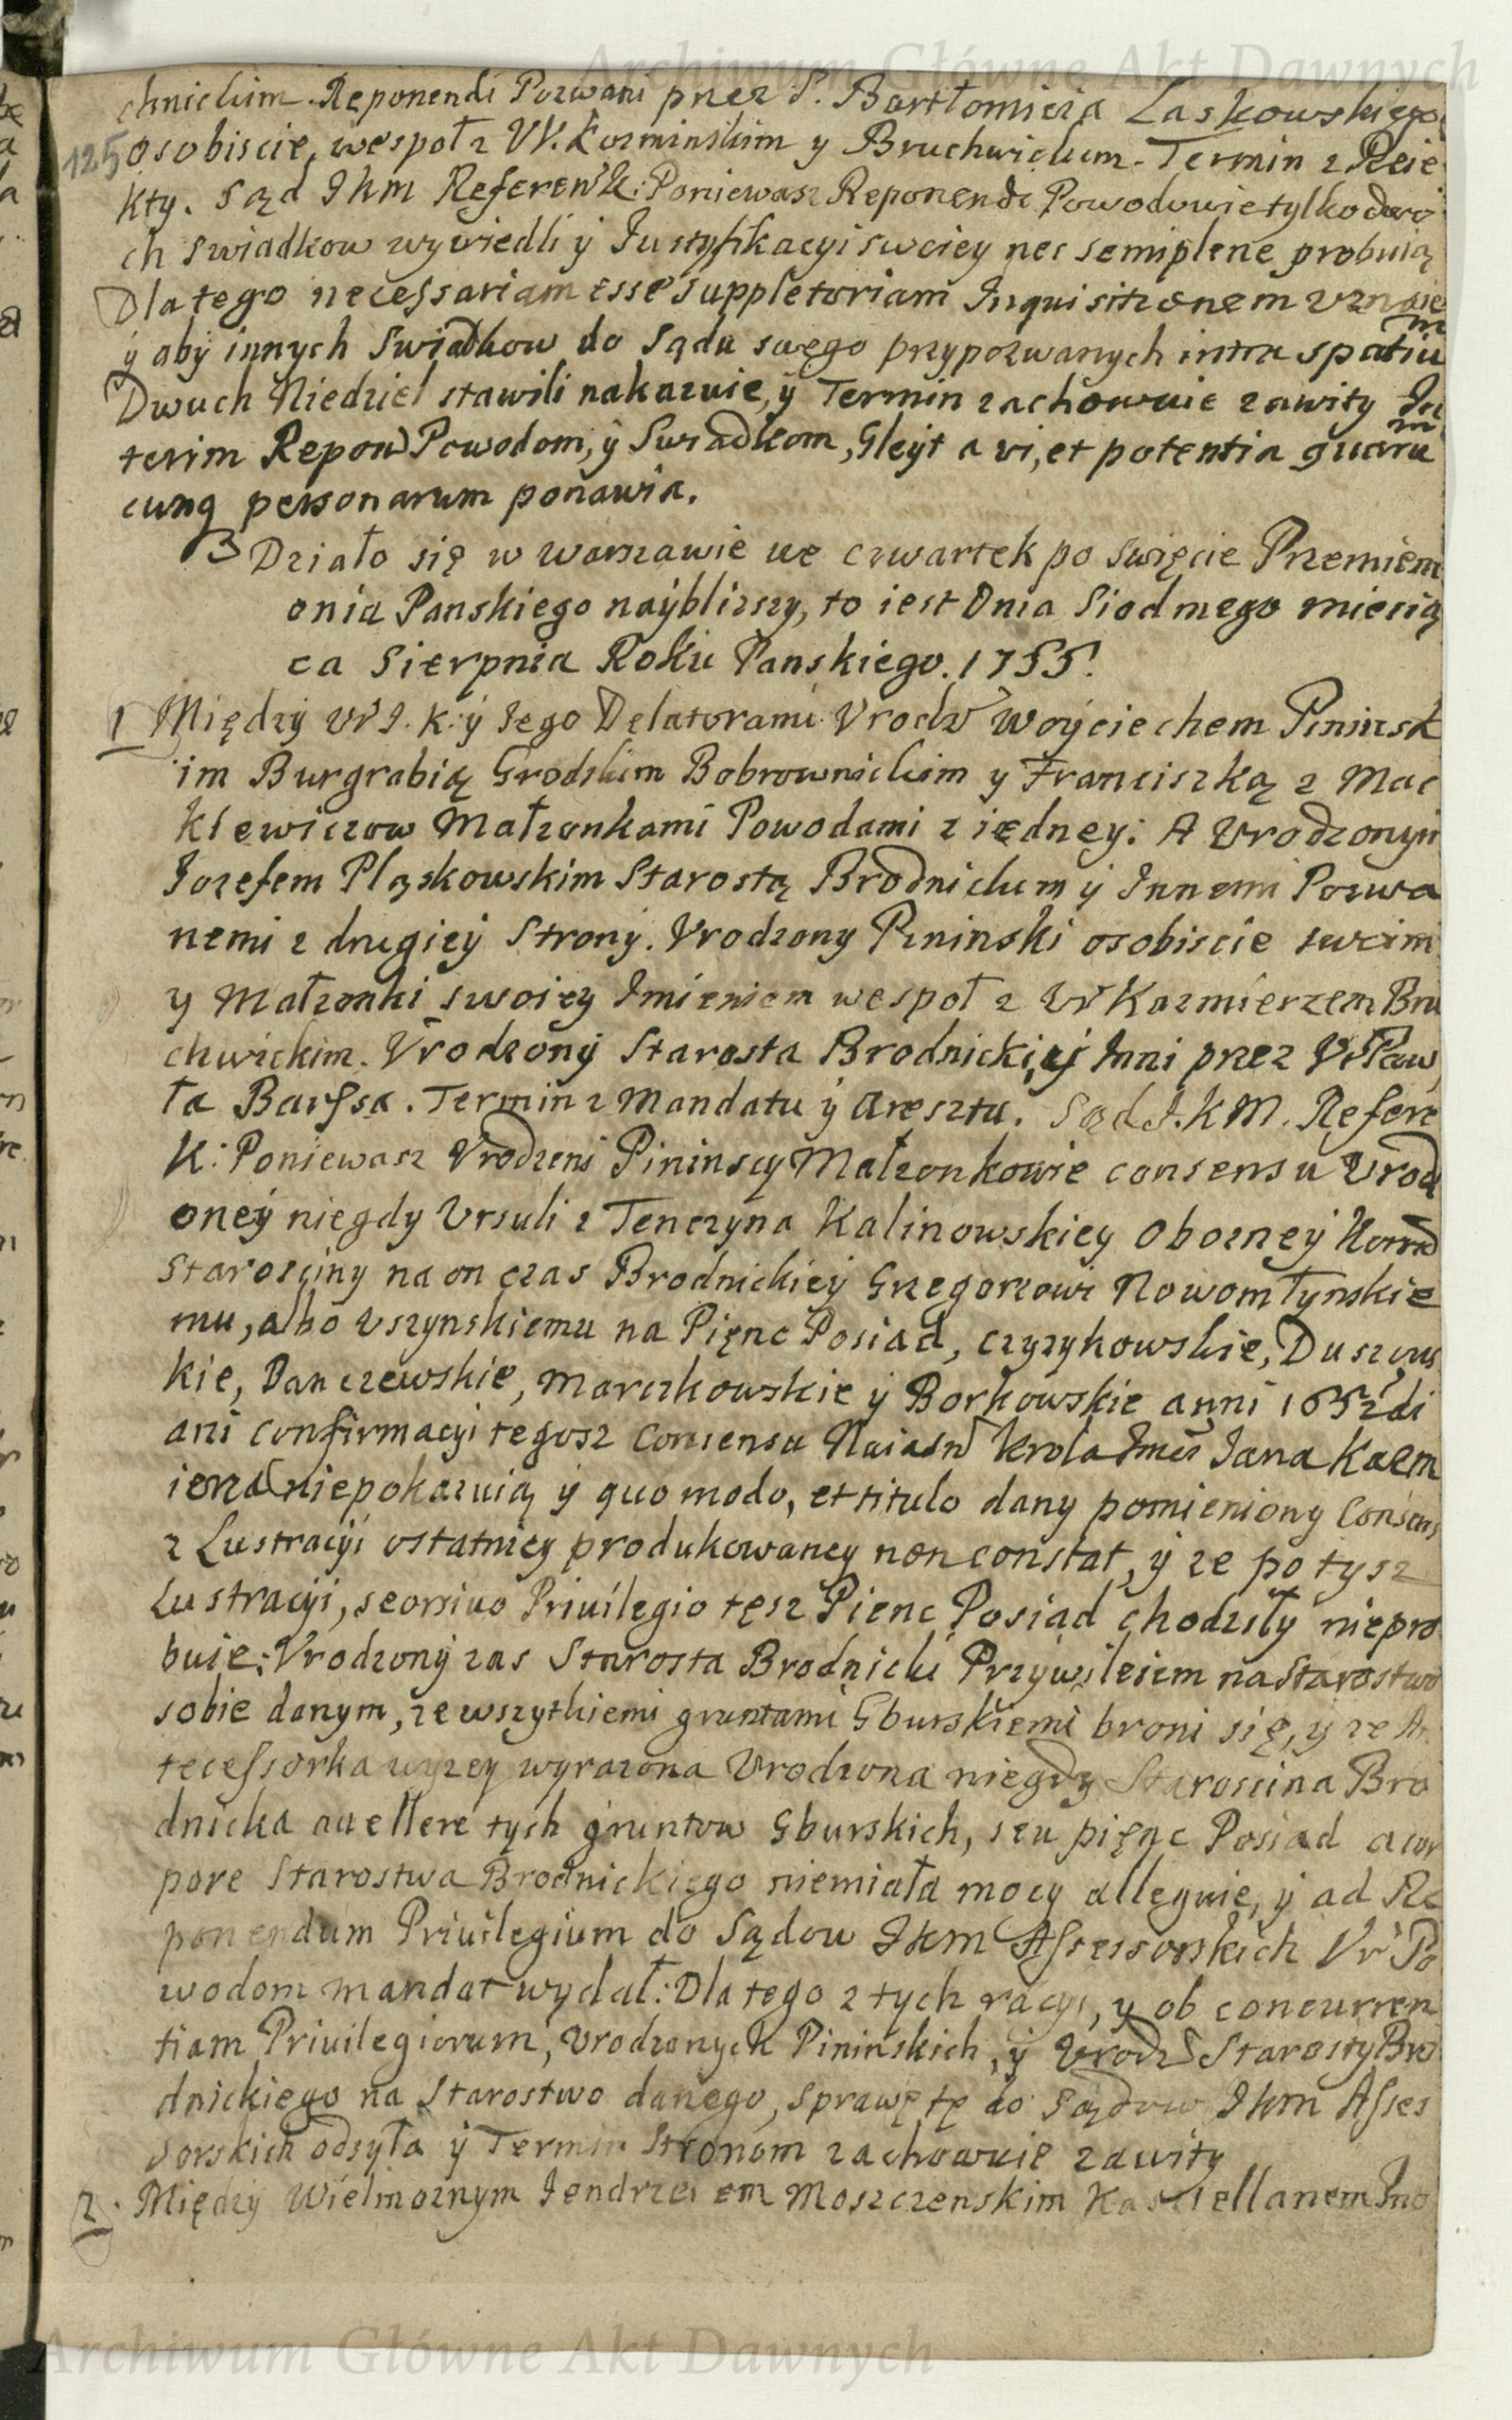 Archiwum Główne Akt Dawnych
chnickim. Reponendi Pozwani przez P. Bartłomieia Laskowskiego
125 osobiscie, wespoł z Vr. Kozminskim y Bruchwickim. Termin z Reie
kty. Sąd Jkm Referen̄ K: Poniewasz Reponendi Powodowie tylko dwo
ch swiadkow wywiedli y Justyfikacyi swoiey nec semiplene probuią
Dla tego necessariam esse suppletoriam Inquisitionem vznaie
y aby innych Swiadkow do Sądu swego przypozwanych intra spatiū
Dwuch Niedziel stawili nakazuie, y Termin zachowuie zawity In
terim Repon̄ Powodom, y Swiadkom, Gleyt a vi, et potentia quarū
cunq personarum ponawia.
Działo się w Warszawie we czwartek po Swięcie Przemien
onia Panskiego nayblizszy, to iest Dnia Siodmego miesią
ca Sierpnia Roku Panskiego. 1755.
1 Między Vr J. K: y Jego Delatorami Vrodz Woyciechem Pininsk
im Burgrabią Grodzkim Bobrownickim y Franciszką z Mac
klewiczow Małzonkami Powodami z iedney: A Vrodzonym
Jozefem Pląskowskim Starostą Brodnickim y Innemi Pozwa
nemi z drugiey Strony. Vrodzony Pininski osobiscie swoim
y Małzonki swoiey Imieniem wespoł z Vr Kazmierzem Bru
chwickim. Vrodzony Starosta Brodnicki, y Inni przez Vr Paw
ła Barssa. Termin z Mandatu y Aresztu. Sąd J. K M. Refere
K: Poniewasz Vrodzeni Pininscy Małzonkowie consensu Vrod
oney niegdy Vrsuli z Tenczyna Kalinowskiey Obozney Koron̄
Starościny na on czas Brodnickiey Grzegorzowi Nowomłynskie
mu, albo Vszynskiemu na Pięnc Posiad, czyzykowskie, Duszyns
kie, Danczewskie, Marczkowskie y Borkowskie anni 1652 di
ani confirmacyi tegosz Consensu Naiasn̄ Krola Jmci Jana Kazm
ierza niepokazuią y quo modo, et titulo dany pomieniony Consens
z Lustracyi ostatniey produkowaney non constat, y ze po tysz
Lustracyi, seorsivo Privilegio tęsz Pienc Posiad chodziły niepro
buie; Vrodzony zas Starosta Brodnicki Przywileiem na Starostwo
sobie danym, ze wszytkiemi gruntami Gburskiemi broni się, y ze An
tecessorka wyzey wyrazona Vrodzona niegdy Starościna Bro
dnicka avellere tych gruntow Gburskich, seu pięnc Posiad a cor
pore Starostwa Brodnickiego niemiała mocy alleguie, y ad Re
ponendum Privilegium do Sądow Jkm Assessorskich Vr Po
wodom mandat wydał: Dla tego z tych racyi, y ob concurren
tiam Privilegiorum, Vrodzonych Pininskich, y Vrodz Starosty Bro
dnickiego na Starostwo danego, sprawę tę do Sądow Jkm Asses
sorskich odsyła y Termin Stronom zachowuie zawity
2. Między Wielmoznym Jendrzeiem Moszczenskim Kasztellanem Ino
Archiwum Główne Akt Dawnych